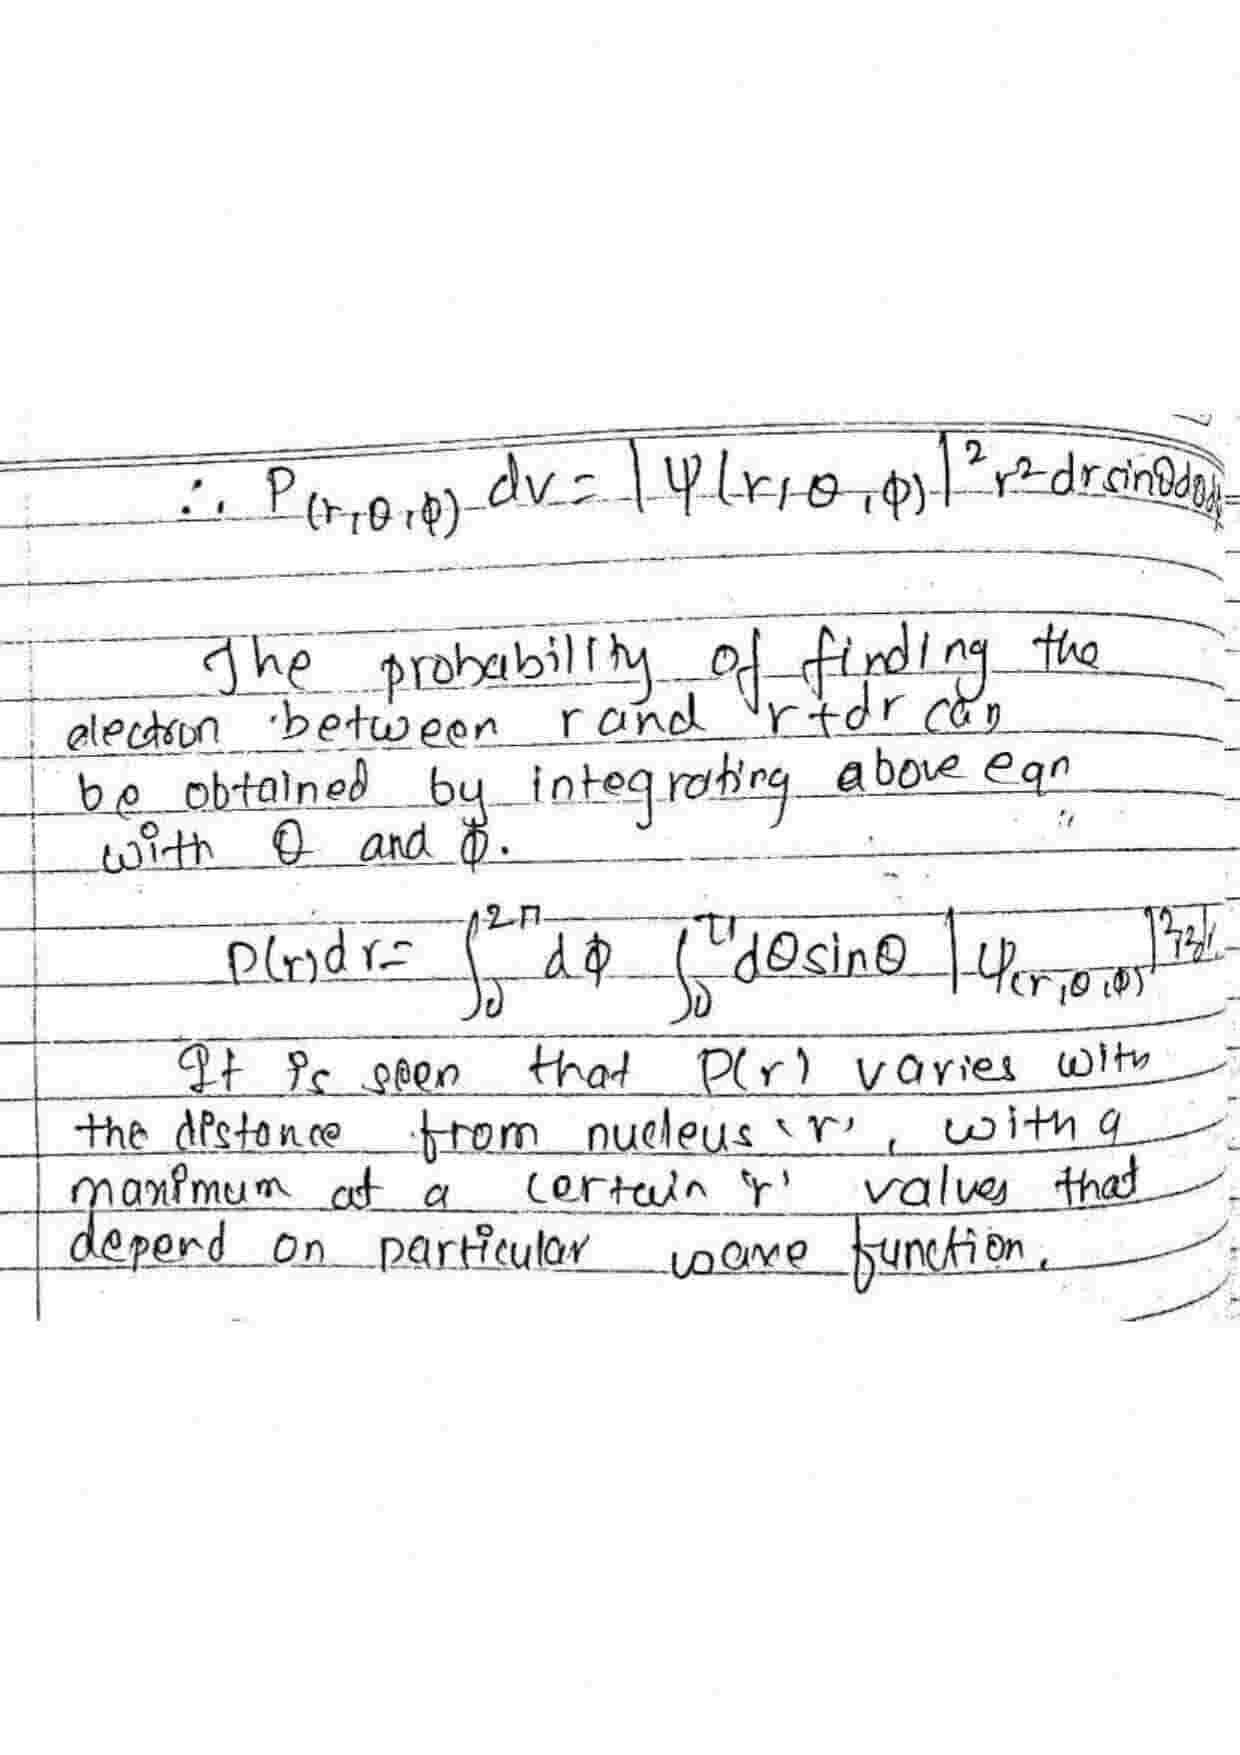 ∴ P(r,θ,φ) dv = |ψ(r,θ,φ)|² r² dr sinθdθdφ
The probability of finding the
electron between r and r+dr can
be obtained by integrating above eqn
with θ and Φ.
P(r)dr = ∫₀^2π dφ ∫₀^π dθ sinθ |ψ(r,θ,φ)|² r² dr
It is seen that P(r) varies with
the distance from nucleus 'r', with a
maximum at a certain 'r' values that
depend on particular wave function.